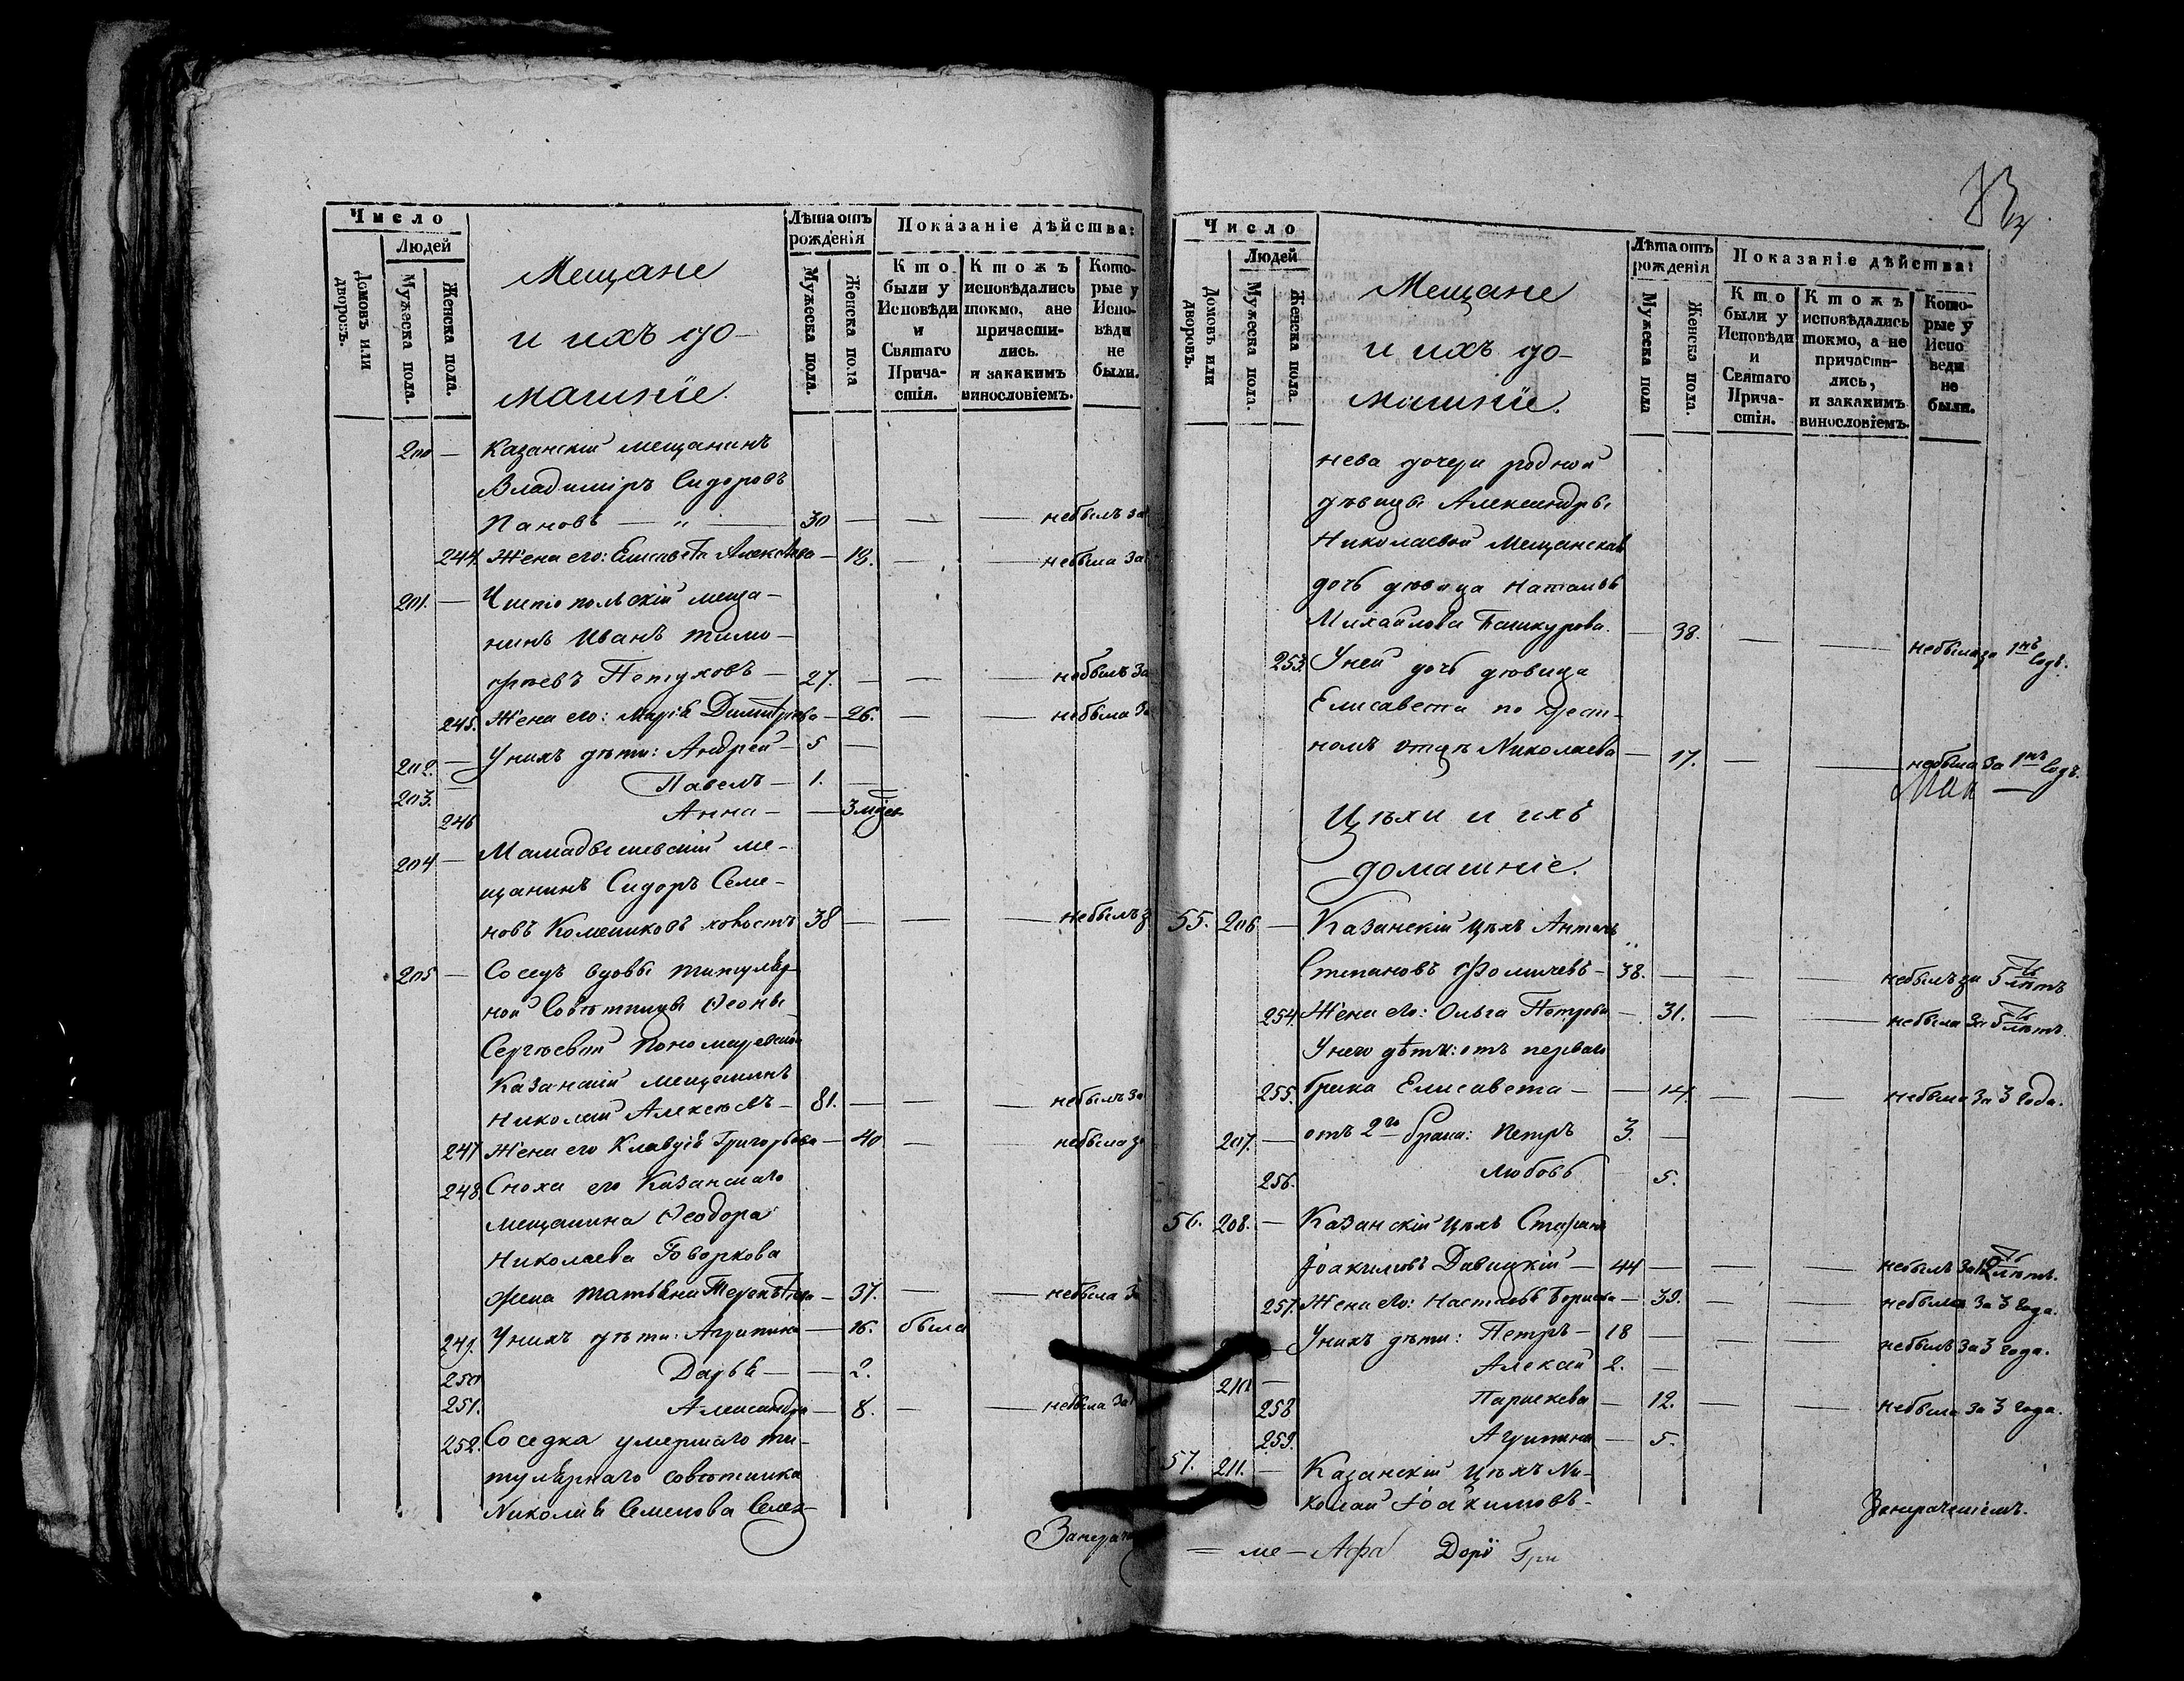 Число
Людей
Домовъ или дворовъ.
Мужеска пола.
Женска пола.
Мещане
и ихъ до-
машніе.
Лѣта отъ рожденія
Мужеска пола.
Женска пола
Показаніе дѣйства:
Кто были у Исповѣди и Святаго Прича-стія.
Ктожъ исповѣдались токмо, а не причасти-лись. и закакимъ винословіемъ.
Кото-рые у Испо-вѣди не были.
200 — Казанскій мещанинъ
Владиміръ Сидоровъ
Пановъ — „ — 30 — — — небылъ за
244. Жена его: Елисавета Алексѣева — 18. — — небыла за
201. — Чистопольскій меща-
нинъ Иванъ Тимо-
фѣевъ Петуховъ — 27. — — — небылъ за
245. Жена его: Марія Димитріева — 26. — — небыла за
202. — Унихъ дѣти: Андрей — 5 —
203. — Павелъ — 1. —
246 Анна — — 3 мѣся
204 — Мамадышевскій ме-
щанинъ Сидоръ Семе-
новъ холостъ 38 — — — небылъ з
205 — Соседъ вдовы титуляр-
ной Совѣтницы Ѳеоны
Сергѣевой Пономаревой
Казанскій мещанинъ
Николай Алексѣевъ — 81. — — — небылъ за
247 Жена его Клавдія Григорьева — 40 — — небыла за
248. Сноха его Казанскаго
мещанина Ѳеодора
Николаева Говоркова
жена Татьяна Терентьева — 37. — — небыла за
249. Унихъ дѣти: Агрипина — 16. была
250 Дарья — — 2.
251. Александра — 8. — — небыла за
252. Соседка умершаго ти-
тулярнаго совѣтника
Николая Семенова
Число
Людей
Домовъ или дворовъ.
Мужеска пола.
Женска пола.
Мещане
и ихъ до-
машніе.
Лѣта отъ рожденія
Мужеска пола
Женска пола.
Показаніе дѣйства:
Кто были у Исповѣди и Святаго Прича-стія.
Ктожъ исповѣдались токмо, а не причасти-лись, и закакимъ винословіемъ.
Кото-рые у Испо веди не были.
нева дочери родной
дѣвицы Александры
Николаевой Мещанская
дочь дѣвица Наталья
Михайлова Башкурова. — 38. — — небыла за 1нъ годъ.
253. Уней дочь дѣвица
Елисавета по крест-
номъ отцѣ Николаева — 17. — — небыла за 1нъ годъ.
Цѣхи и ихъ
домашніе.
55. 206 — Казанскій цѣхъ Антонъ
Степановъ Фомичевъ — 38. — — — небылъ за 5ть лѣтъ
254. Жена его: Ольга Петрова — 31. — — небыла за 5ть лѣтъ.
Унего дѣти: отъ перваго
255. брака Елисавета — — 14 — — небыла за 3 года.
207. — отъ 2го брака: Петръ 3. —
256. Любовь 5.
56. 208. — Казанскій цѣхъ Стефанъ
Іоакимовъ Давицкій — 44 — — — небылъ за лѣтъ.
257. Жена его: Настасья Борисова — 39. — — небыла за 3 года.
— Унихъ дѣти: Петръ — 18 — — — небылъ за 3 года.
210 — Алексѣй 2. —
258 Параскева — 12. — — небыла за 3 года.
259. Агрипина — 5.
57. 211. — Казанскій цѣхъ Ни-
колай Іоакимовъ-